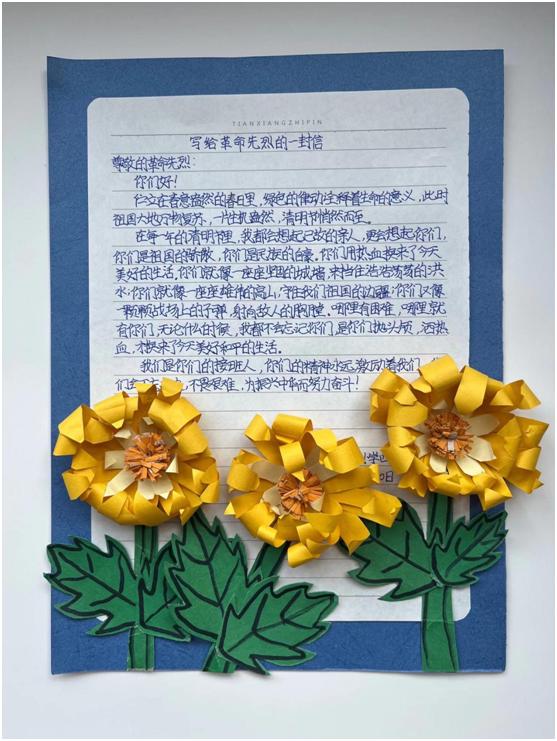 TIANXIANGZHIPIN
写给革命先烈的一封信
尊敬的革命先烈:
你们好!
伫立在春意盎然的春日里,绿色的律动注释着生命的意义,此时
祖国大地万物复苏,一片生机盎然,清明节悄然而至。
在每一年的清明节里,我都会想起已故的亲人,更会想起你们,
你们是祖国的骄傲,你们是民族的自豪。你们用热血换来了今天
美好的生活,你们就像一座座坚固的城墙,来挡住浩浩荡荡的洪
水;你们就像一座座雄伟的高山,守住我们祖国的边疆;你们又像
一颗颗战场上的子弹,射向敌人的胸膛。哪里有困难,哪里就
有你们,无论什么时候,我都不会忘记你们,是你们抛头颅,洒热
血,才换来了今天美好和平的生活。
我们是你们的接班人,你们的精神永远激励着我们,
们 不畏艰难,为振兴中华而努力奋斗!
学
0日